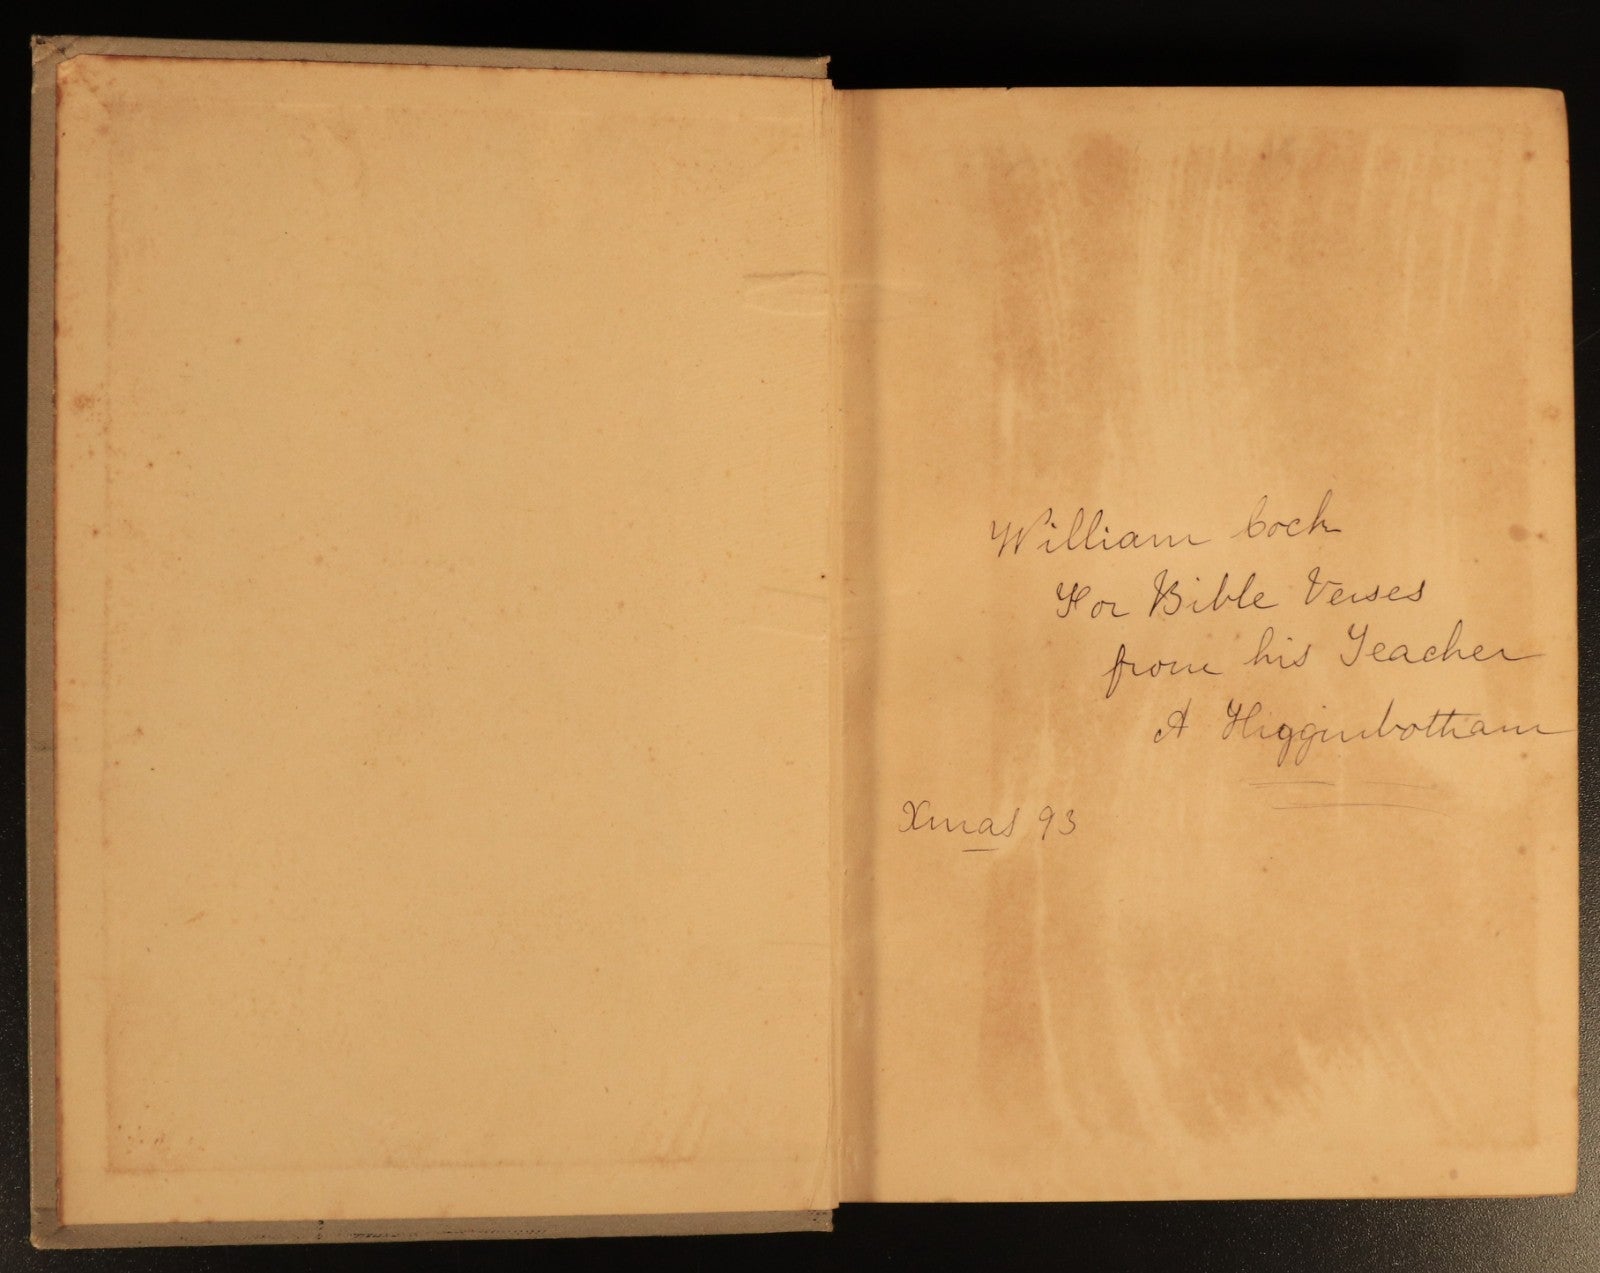 William Cock
For Bible Verses
from his Teacher
A Higginbotham
Xmas 93